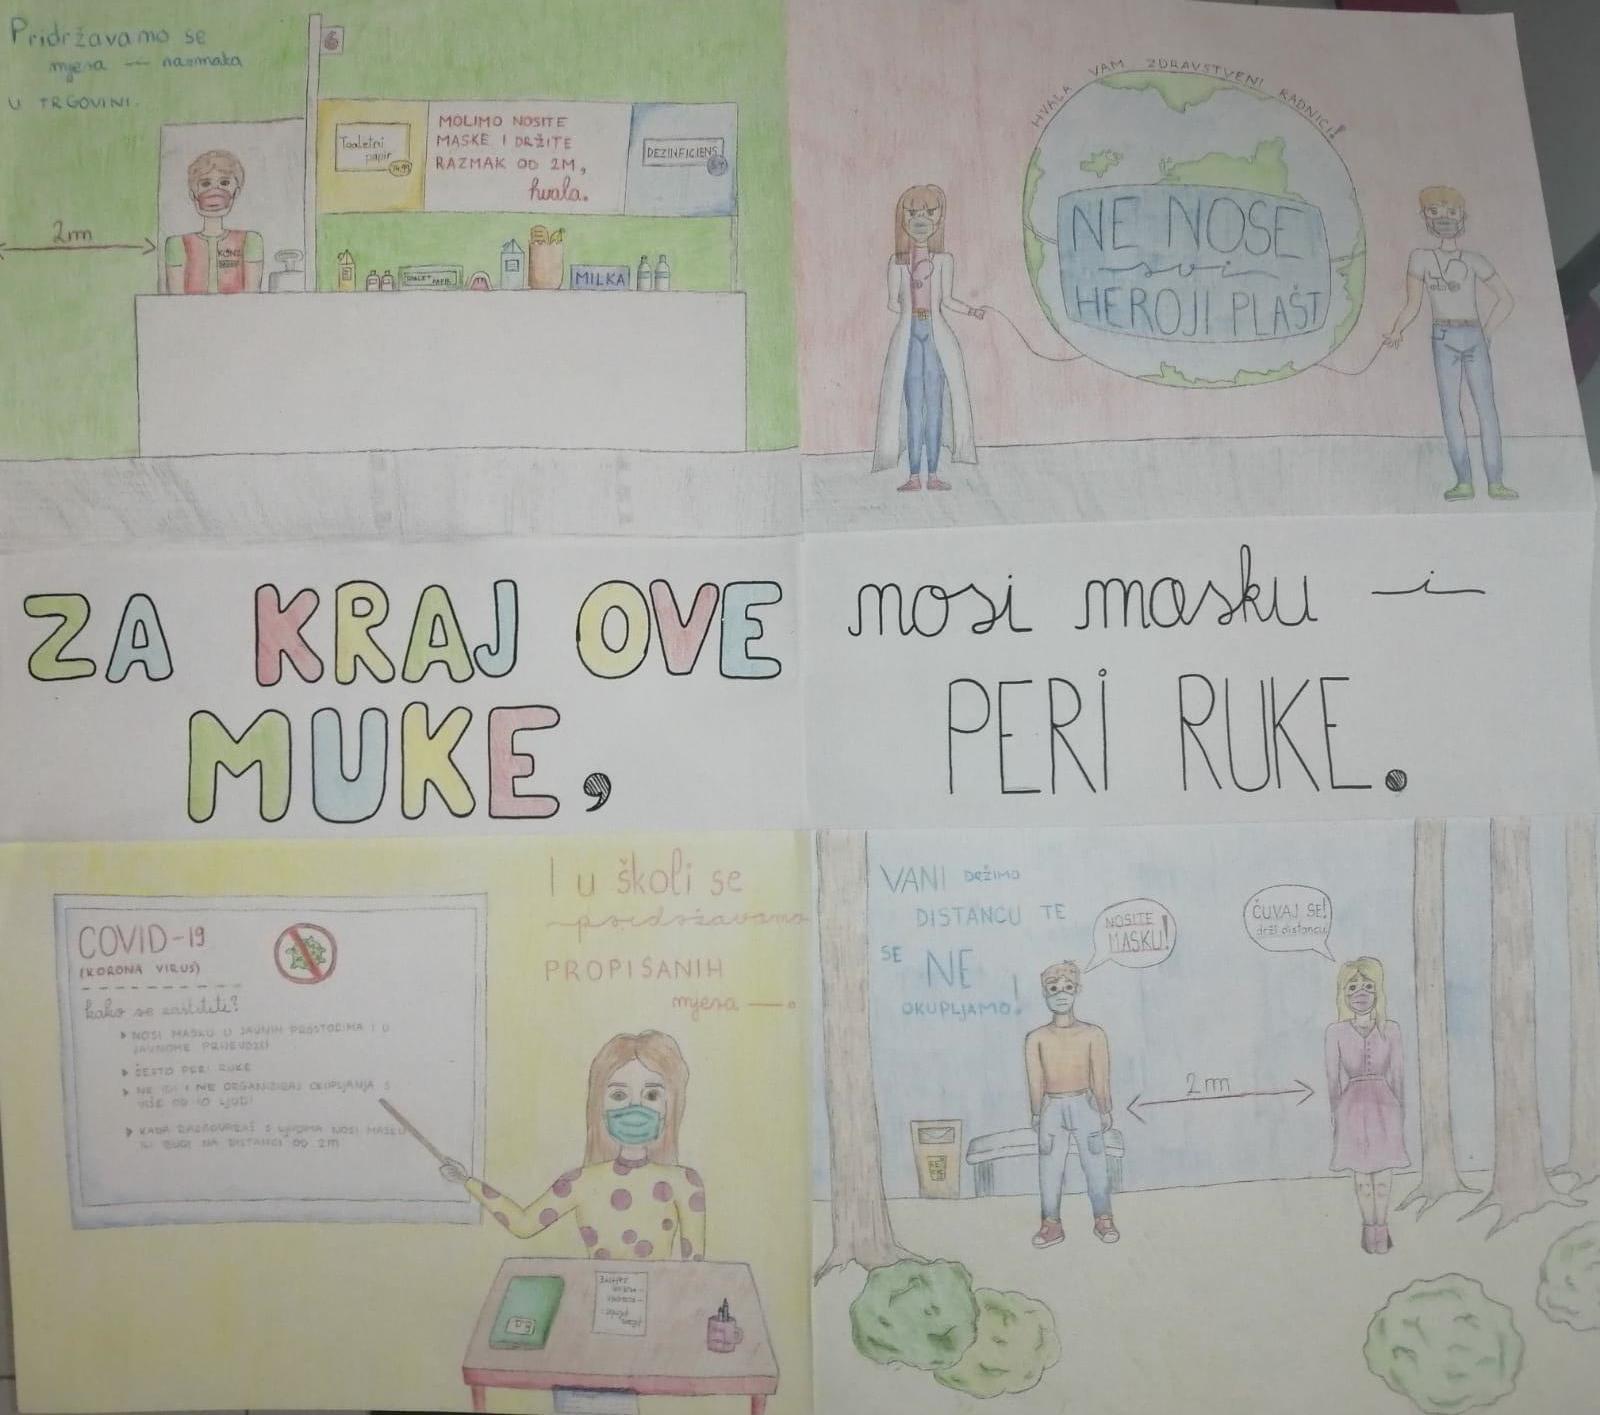 Pridržavamo se
mjera i razmaka
U TRGOVINI.
6
Toaletni
papir
MOLIMO NOSITE
MASKE I DRŽITE
RAZMAK OD 2M,
hvala.
DEZINFICIENS
2m
KONZUM
TOALET PAPIR
MILKA
HVALA VAM ZDRAVSTVENI RADNICI!
NE NOSE
svi
HEROJI PLAŠT
ZA KRAJ OVE
MUKE,
nosi masku i
PERI RUKE.
I u školi se
pridržavamo
PROPISANIH
mjera.
COVID-19
(KORONA VIRUS)
kako se zaštititi?
NOSI MASKU U JAVNIM PROSTORIMA I U
JAVNOME PRIJEVOZU
ČESTO PERI RUKE
NE IDI I NE ORGANIZIRAJ OKUPLJANJA S
VIŠE OD 10 LJUDI
KADA RAZGOVARAŠ S LJUDIMA NOSI MASKU
ILI BUDI NA DISTANCI OD 2m
VANI DRŽIMO
DISTANCU TE
SE NE
OKUPLJAMO!
NOSITE
MASKU!
ČUVAJ SE!
drži distancu
2m